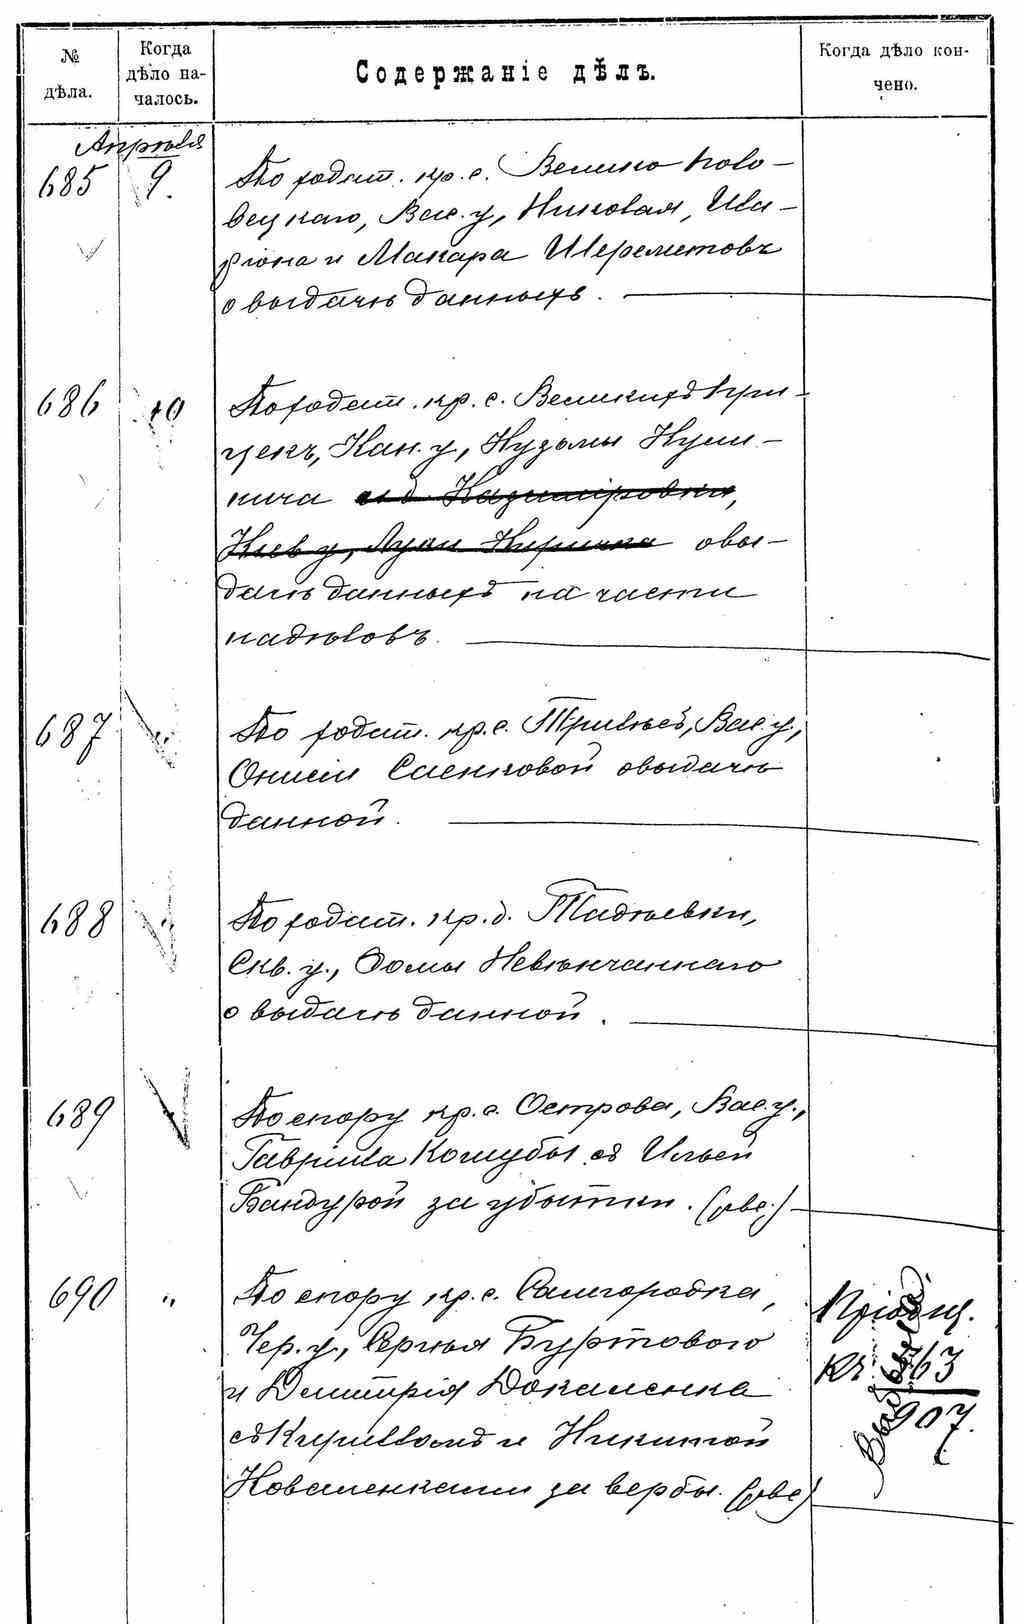 № дѣла.
Когда дѣло началось.
Содержаніе дѣлъ.
Когда дѣло кончено.
Апрѣля
685 9. По ходат. кр. с. Велико Поло-
вецкаго, Вас. у., Николая, Ила-
ріона и Макара Шереметовъ
о выдачѣ данныхъ.
686 10 По ходат. кр. с. Великихъ При-
цекъ, Кан. у., Кузьмы Куш-
нича и д. Казиміровки,
Киев у., Луки Кирична о вы-
дачѣ данныхъ на части
надѣловъ.
687 По ходат. кр. с. Трилѣсъ, Вас. у.,
Онисіи Саенковой о выдачѣ
данной.
688 По ходат. кр. д. Тадѣевки,
Скв. у., Ѳомы Невѣнчаннаго
о выдачѣ данной.
689 По спору кр. с. Острова, Вас. у.,
Гавріила Коцубы съ Ильей
Бандурой за убытки.
690 " По спору кр. с. Самгородка,
Чер. у., Сергѣя Буртового
и Дмитрія Докаленка
съ Кирилломъ и Никитой
Коваленками за вербы.
Пріобщ.
къ 763
907.